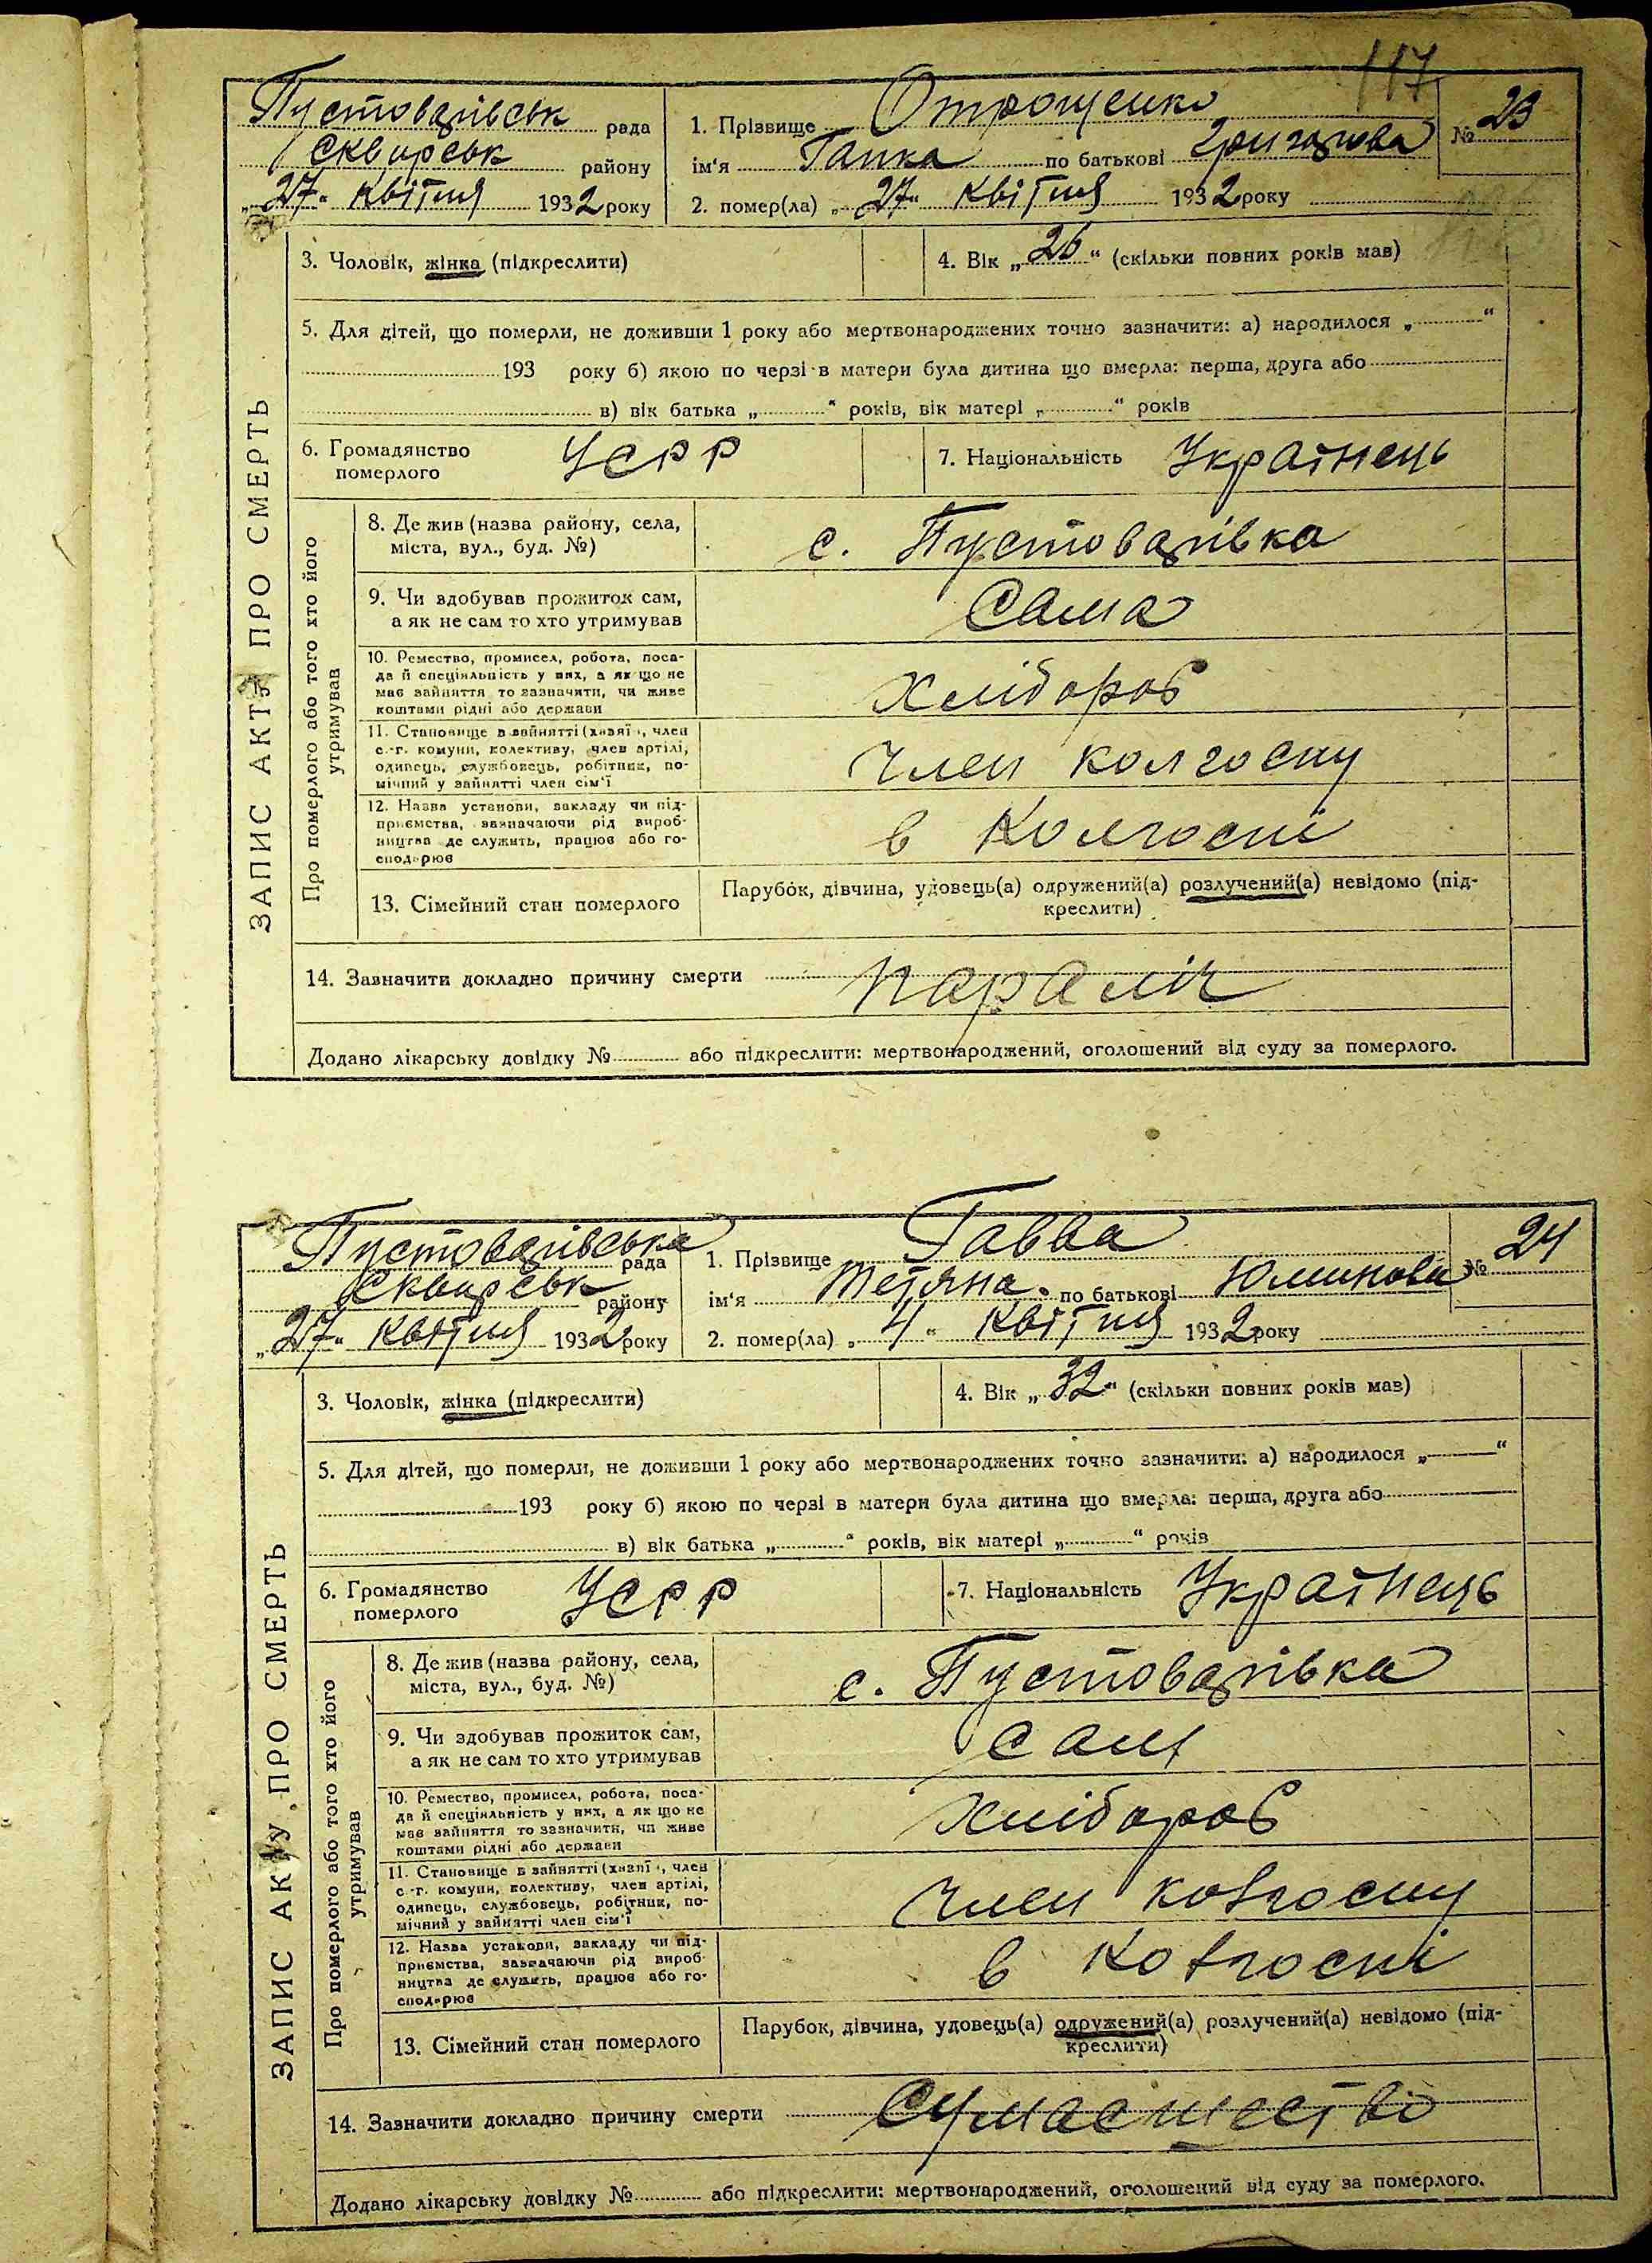 117
Пустоварівськ рада
Сквирськ району
„27“ квітня 1932 року
1. Прізвище Отрощенко № 23
ім'я Гапка по батькові Григорова
2. помер(ла) „27“ квітня 1932 року
3. Чоловік, жінка (підкреслити)
4. Вік „26“ (скільки повних років мав)
5. Для дітей, що померли, не доживши 1 року або мертвонароджених точно зазначити: а) народилося „ “
193 року б) якою по черзі в матери була дитина що вмерла: перша, друга або
в) вік батька „ “ років, вік матері „ “ років
6. Громадянство
померлого УСРР
7. Національність Українець
ЗАПИС АКТУ ПРО СМЕРТЬ
Про померлого або того хто його
утримував
8. Де жив (назва району, села,
міста, вул., буд. №)
с. Пустоварівка
9. Чи здобував прожиток сам,
а як не сам то хто утримував
Сама
10. Ремество, промисел, робота, поса-
да й спеціяльність у них, а як що не
має зайняття то зазначити, чи живе
коштами рідні або держави
Хлібороб
11. Становище в зайнятті (хазяї, член
с.-г. комуни, колективу, член артілі,
одинець, службовець, робітник, по-
мічний у зайнятті член сім'ї
Член колгоспу
12. Назва установи, закладу чи під-
приємства, зазначаючи рід вироб-
ництва де служить, працює або го-
сподарює
в Колгоспі
13. Сімейний стан померлого
Парубок, дівчина, удовець(а) одружений(а) розлучений(а) невідомо (під-
креслити)
14. Зазначити докладно причину смерти Параліч
Додано лікарську довідку № або підкреслити: мертвонароджений, оголошений від суду за померлого.
Пустоварівська рада
Сквирськ району
„27“ квітня 1932 року
1. Прізвище Гавва № 24
ім'я Тетяна по батькові
2. помер(ла) „4“ квітня 1932 року
3. Чоловік, жінка (підкреслити)
4. Вік „32“ (скільки повних років мав)
5. Для дітей, що померли, не доживши 1 року або мертвонароджених точно зазначити: а) народилося „ “
193 року б) якою по черзі в матери була дитина що вмерла: перша, друга або
в) вік батька „ “ років, вік матері „ “ років
6. Громадянство
померлого УСРР
7. Національність Українець
ЗАПИС АКТУ ПРО СМЕРТЬ
Про померлого або того хто його
утримував
8. Де жив (назва району, села,
міста, вул., буд. №)
с. Пустоварівка
9. Чи здобував прожиток сам,
а як не сам то хто утримував
сам
10. Ремество, промисел, робота, поса-
да й спеціяльність у них, а як що не
має зайняття то зазначити, чи живе
коштами рідні або держави
Хлібороб
11. Становище в зайнятті (хазяї, член
с.-г. комуни, колективу, член артілі,
одинець, службовець, робітник, по-
мічний у зайнятті член сім'ї
Член ковгоспу
12. Назва установи, закладу чи під-
приємства, зазначаючи рід вироб-
ництва де служить, працює або го-
сподарює
в Ковгоспі
13. Сімейний стан померлого
Парубок, дівчина, удовець(а) одружений(а) розлучений(а) невідомо (під-
креслити)
14. Зазначити докладно причину смерти Сумасшество
Додано лікарську довідку № або підкреслити: мертвонароджений, оголошений від суду за померлого.